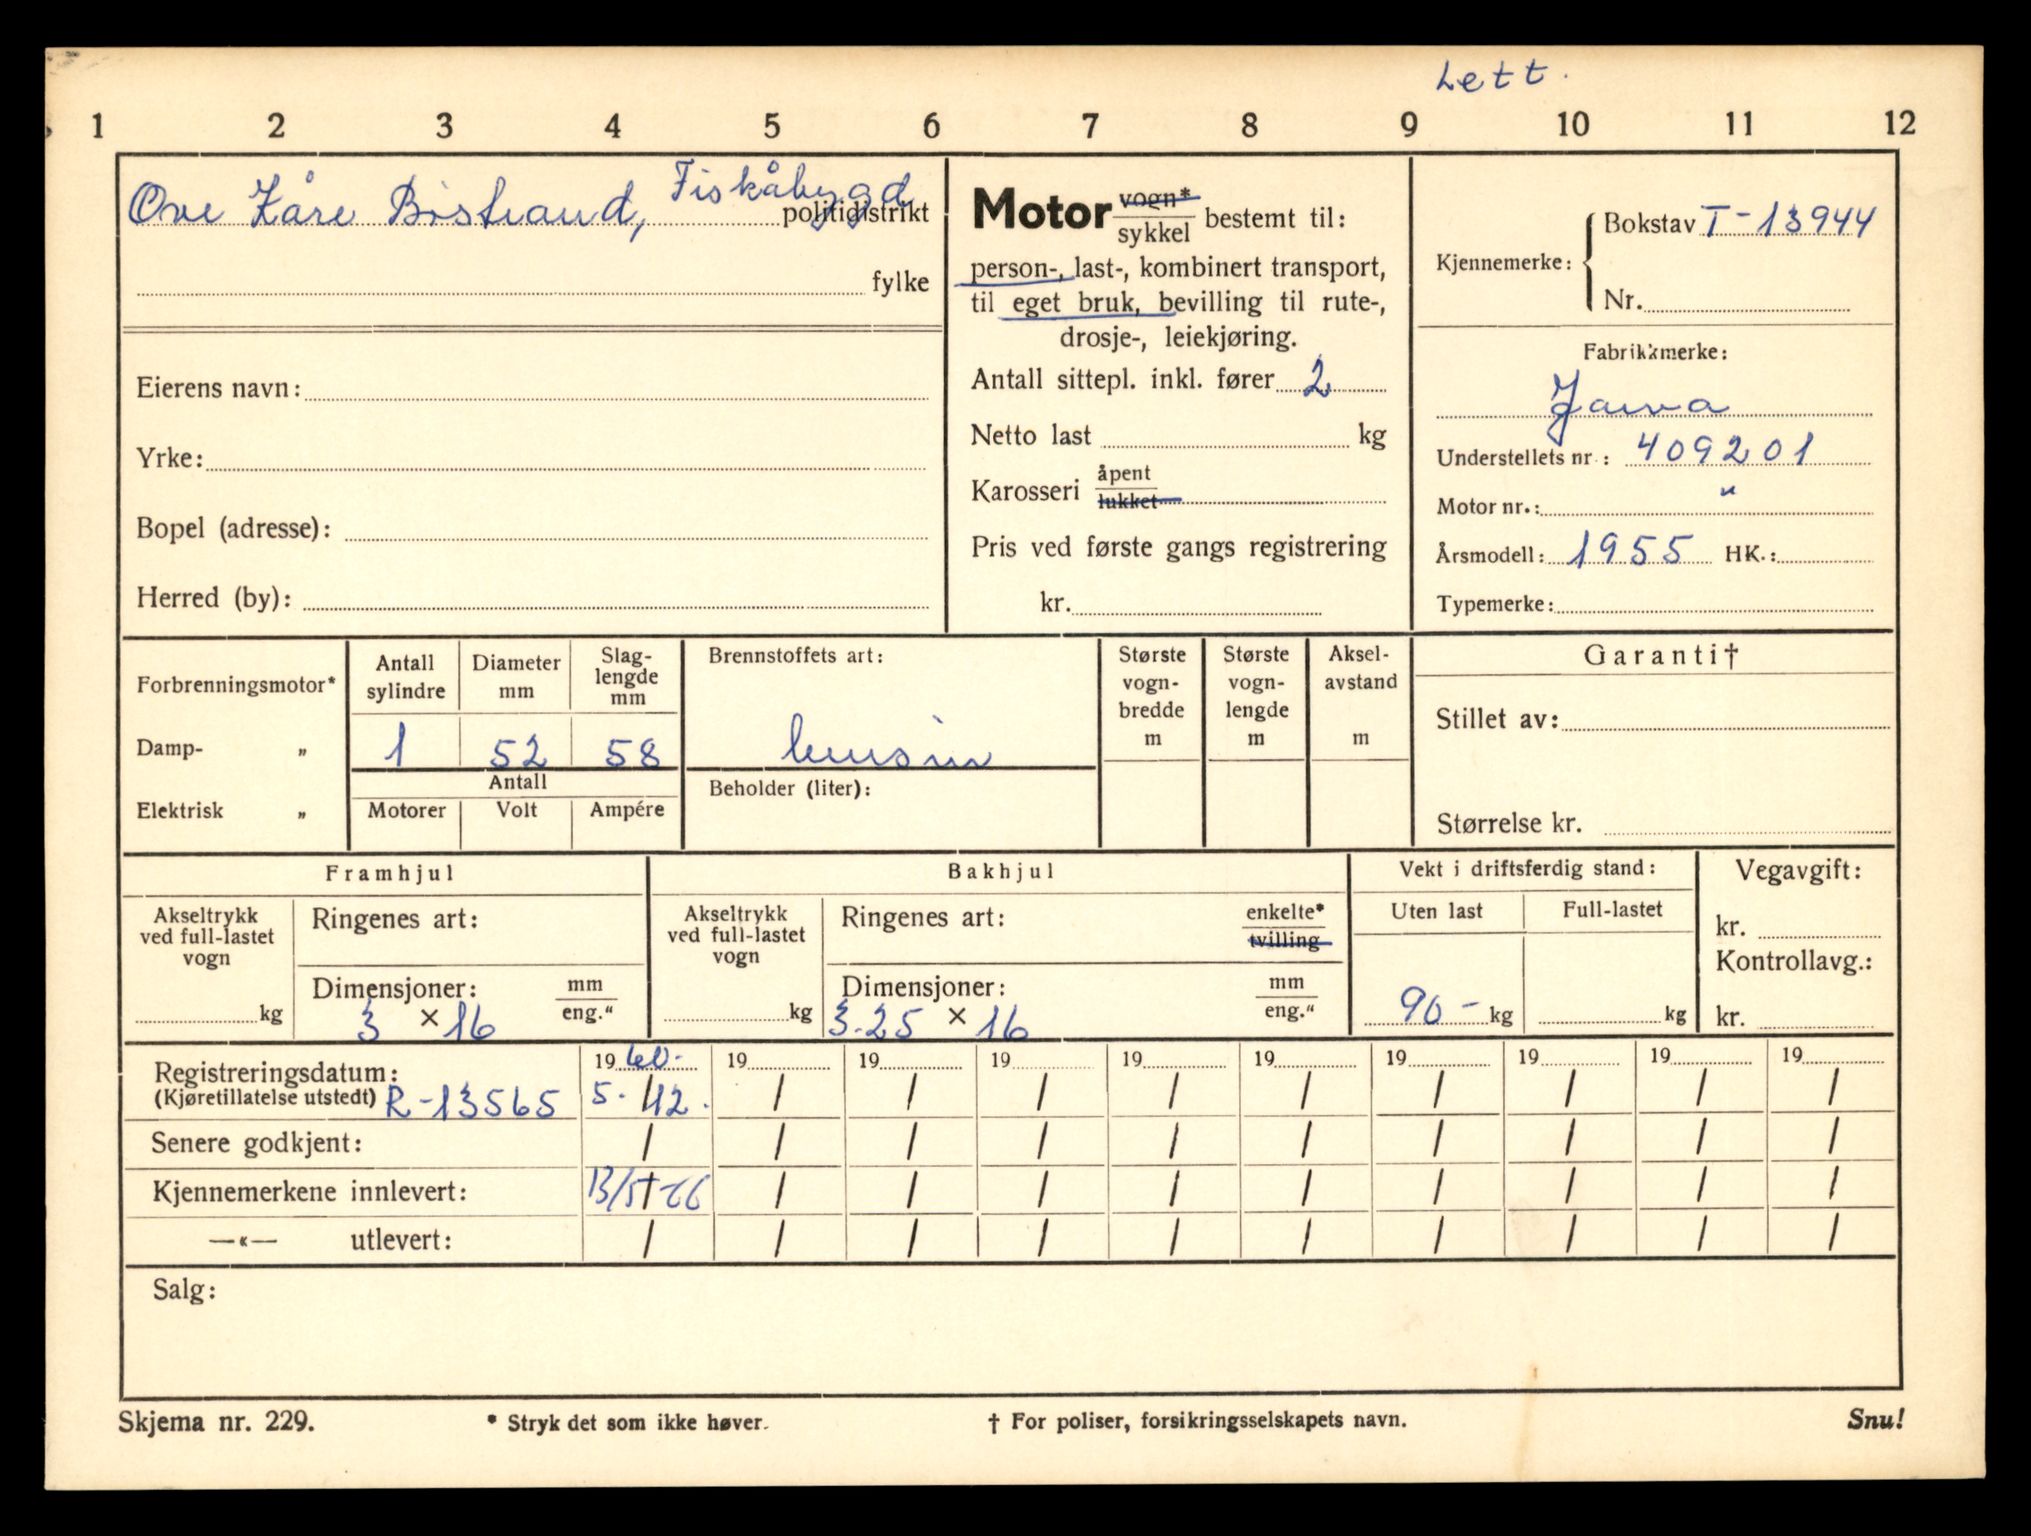 Lett.
1 2 3 4 5 6 7 8 9 10 11 12
Ove Kåre Bistrand, Fiskåbygd politidistrikt
fylke
Eierens navn:
Yrke:
Bopel (adresse):
Herred (by):
Motor vogn* / sykkel bestemt til:
person-, last-, kombinert transport,
til eget bruk, bevilling til rute-,
drosje-, leiekjøring.
Antall sittepl. inkl. fører 2
Netto last kg
Karosseri åpent / lukket
Pris ved første gangs registrering
kr.
Kjennemerke: Bokstav T-13944
Nr.
Fabrikkmerke:
Jawa
Understellets nr.: 409201
Motor nr.: "
Årsmodell: 1955 HK.:
Typemerke:
Forbrenningsmotor*
Damp- „
Elektrisk „
Antall sylindre
Diameter mm
Slag-
lengde
mm
1 52 58
Antall
Motorer Volt Ampére
Brennstoffets art:
bensin
Beholder (liter):
Største
vogn-
bredde
m
Største
vogn-
lengde
m
Aksel-
avstand
m
Garanti†
Stillet av:
Størrelse kr.
Framhjul
Akseltrykk
ved full-lastet
vogn
kg
Ringenes art:
Dimensjoner: mm / eng."
3 × 16
Bakhjul
Akseltrykk
ved full-lastet
vogn
kg
Ringenes art: enkelte* / tvilling
Dimensjoner: mm / eng."
3.25 × 16
Vekt i driftsferdig stand:
Uten last Full-lastet
90- kg kg
Vegavgift:
kr.
Kontrollavg.:
kr.
19 60- 19 19 19 19 19 19 19 19 19
Registreringsdatum:
(Kjøretillatelse utstedt) R-13565 5. / 12. / / / / / / / / /
Senere godkjent: / / / / / / / / / /
Kjennemerkene innlevert: 13/5-66 / / / / / / / / /
—«— utlevert: / / / / / / / / / /
Salg:
Skjema nr. 229. * Stryk det som ikke høver. † For poliser, forsikringsselskapets navn. Snu!